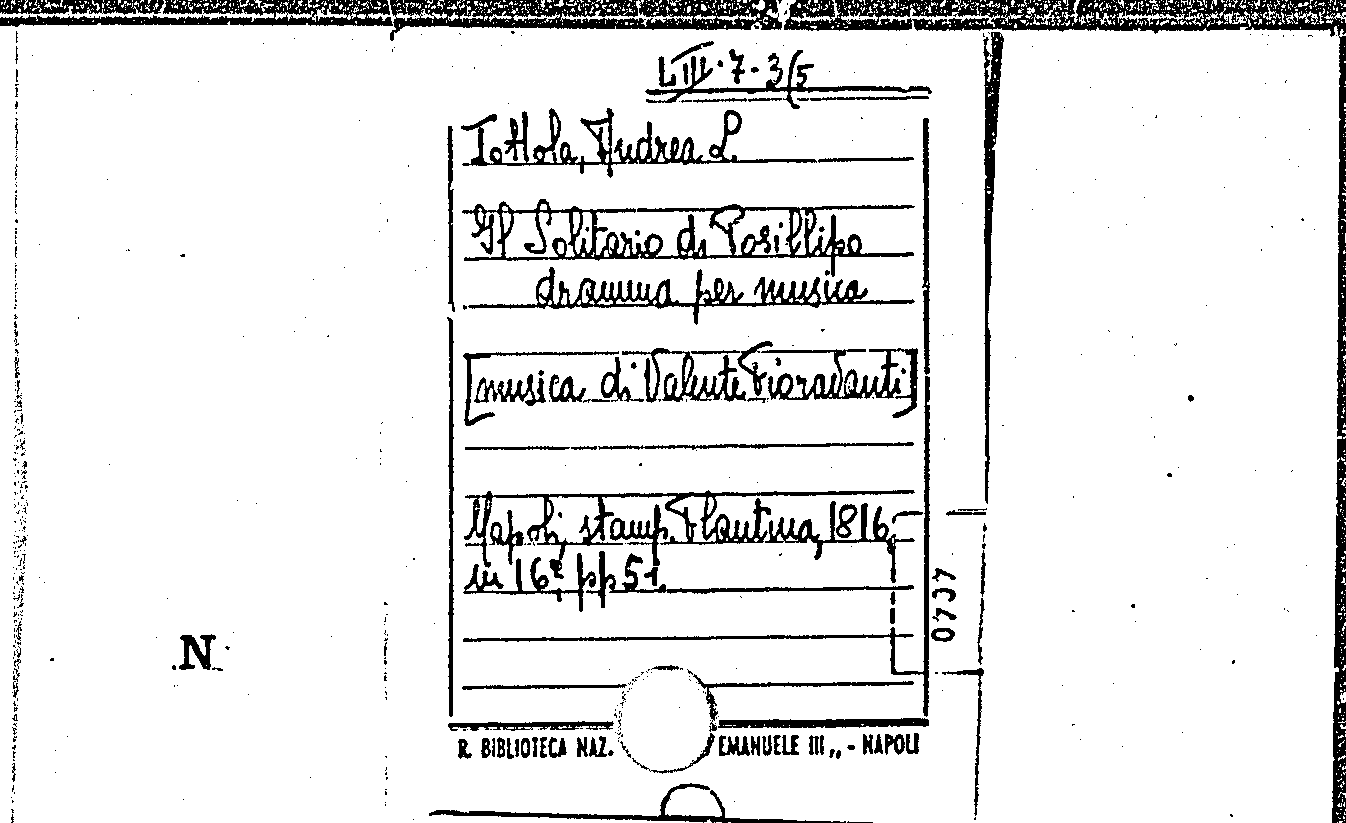 LIII·7·3(5
Tottola, Andrea L.
Il Solitario di Posillipo
dramma per musica
[musica di Valente Fioravanti]
Napoli, stamp. Flautina, 1816,
in 16º, pp 51.
N
R. BIBLIOTECA NAZ. EMANUELE III „ - NAPOLI